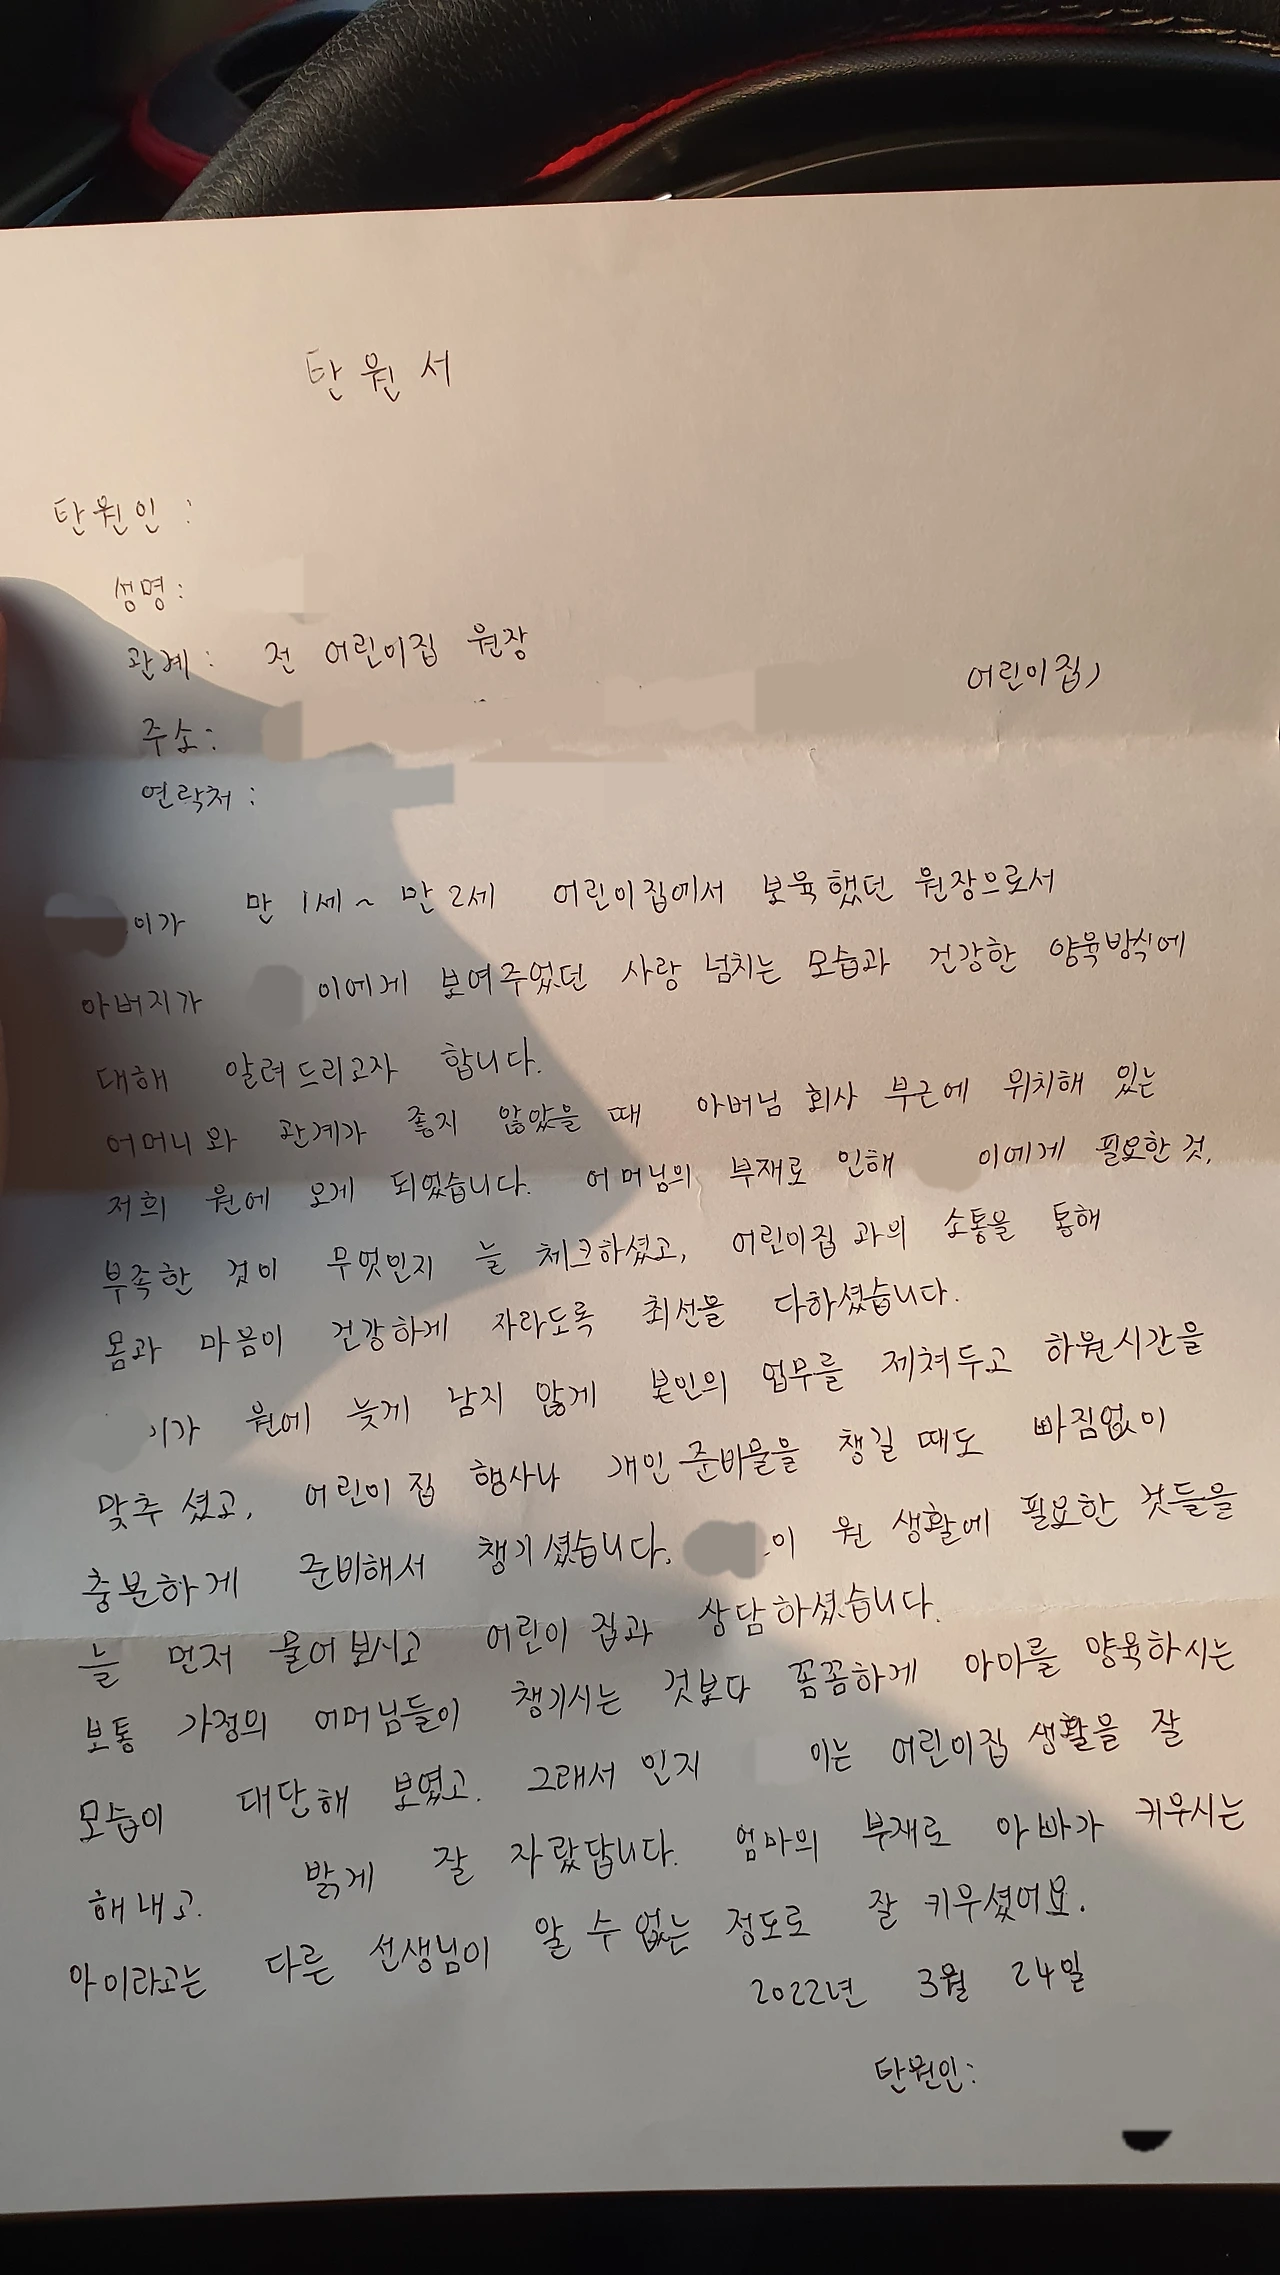 탄원서
탄원인 :
성명 :
관계 : 전 어린이집 원장
어린이집)
주소 :
연락처 :
이가 만 1세 ~ 만 2세 어린이집에서 보육했던 원장으로서
아버지가 이에게 보여주었던 사랑 넘치는 모습과 건강한 양육방식에
대해 알려드리고자 합니다.
어머니와 관계가 좋지 않았을 때 아버님 회사 부근에 위치해 있는
저희 원에 오게 되었습니다. 어머님의 부재로 인해 이에게 필요한 것,
부족한 것이 무엇인지 늘 체크하셨고, 어린이집과의 소통을 통해
몸과 마음이 건강하게 자라도록 최선을 다하셨습니다.
이가 원에 늦게 남지 않게 본인의 업무를 제쳐두고 하원시간을
맞추셨고, 어린이집 행사나 개인준비물을 챙길 때도 빠짐없이
충분하게 준비해서 챙기셨습니다. 이 원 생활에 필요한 것들을
늘 먼저 물어보시고 어린이집과 상담하셨습니다.
보통 가정의 어머님들이 챙기시는 것보다 꼼꼼하게 아아를 양육하시는
모습이 대단해 보였고. 그래서 인지 이는 어린이집 생활을 잘
해내고. 밝게 잘 자랐답니다. 엄마의 부재로 아빠가 키우시는
아이라고는 다른 선생님이 알 수 없는 정도로 잘 키우셨어요.
2022년 3월 24일
탄원인: